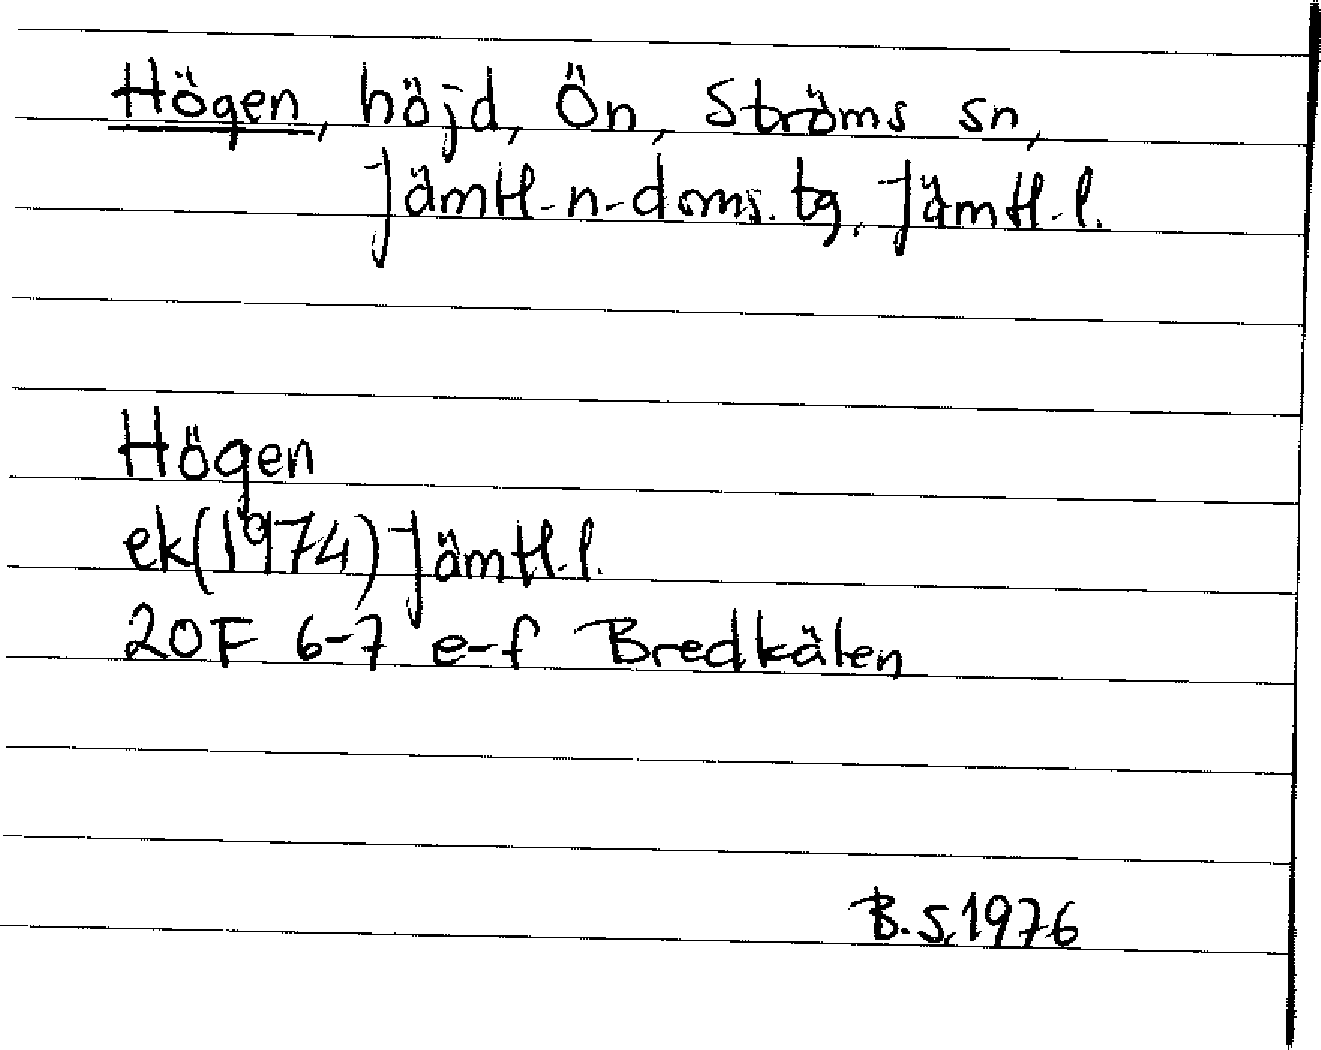 Högen, höjd, Ön, Ströms sn,
Jämtl-n-doms. tg, Jämtl-l.
Högen
ek(1974) Jämtl.l.
20F 6-7 e-f Bredkälen
B.S.1976